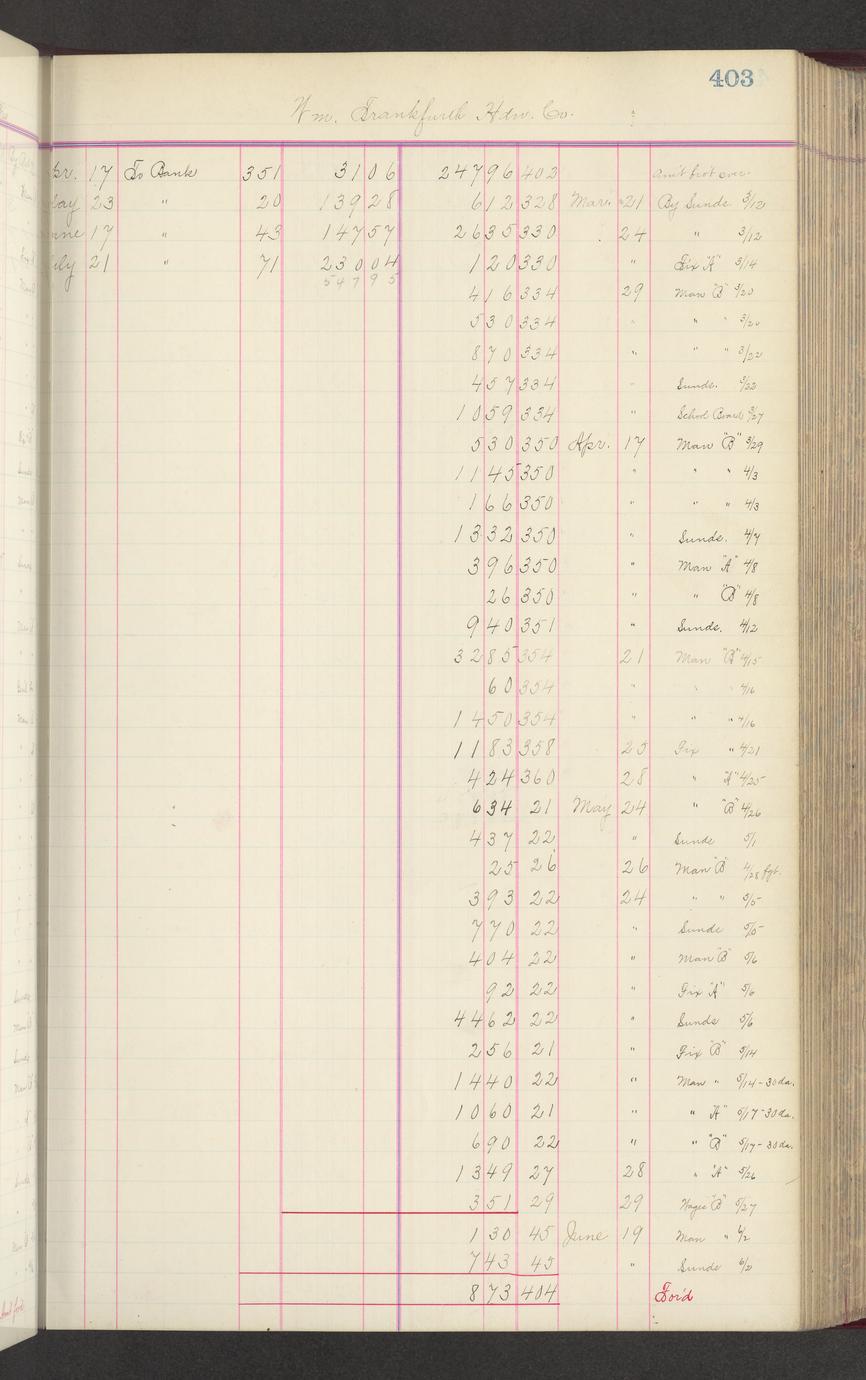 403
Wm. Frankfurth Hdw. Co.
pr. 17 To Bank 351 31 06 247 96 402 Am't bro't over
ay 23 " 20 139 28 6 12 328 Mar. 21 By Sunds 3/12
une 17 " 43 147 57 26 35 330 24 " 3/12
uly 21 " 71 230 04 1 20 330 " Fix "A" 3/14
547 95
4 16 334 29 Man "B" 3/20
5 30 334 " " " 3/20
8 70 334 " " " 3/22
4 57 334 " Sunds. 3/22
10 59 334 " School Board 3/27
5 30 350 Apr. 17 Man "B" 3/29
11 45 350 " " " 4/3
1 66 350 " " " 4/3
13 32 350 " Sunds. 4/7
3 96 350 " Man "A" 4/8
26 350 " " "B" 4/8
9 40 351 " Sunds. 4/12
32 85 354 21 Man "B" 4/15
60 354 " " " 4/16
14 50 354 " " " 4/16
11 83 358 25 Fix " 4/21
4 24 360 28 " "A" 4/25
6 34 21 May 24 " "B" 4/26
4 37 22 " Sunds 5/1
25 26 26 Man "B" 4/28 fgt.
3 93 22 24 " " 5/5
7 70 22 " Sunds 5/5
4 04 22 " Man "B" 5/6
92 22 " Fix "A" 5/6
44 62 22 " Sunds 5/6
2 56 21 " Fix "B" 5/14
14 40 22 " Man " 5/14-30da.
10 60 21 " " "A" 5/17-30da.
6 90 22 " " "B" 5/17-30da.
13 49 27 28 " "A" 5/26
3 51 29 29 Wages "B" 5/27
1 30 45 June 19 Man " 6/2
7 43 45 " Sunds 6/2
8 73 404 For'd